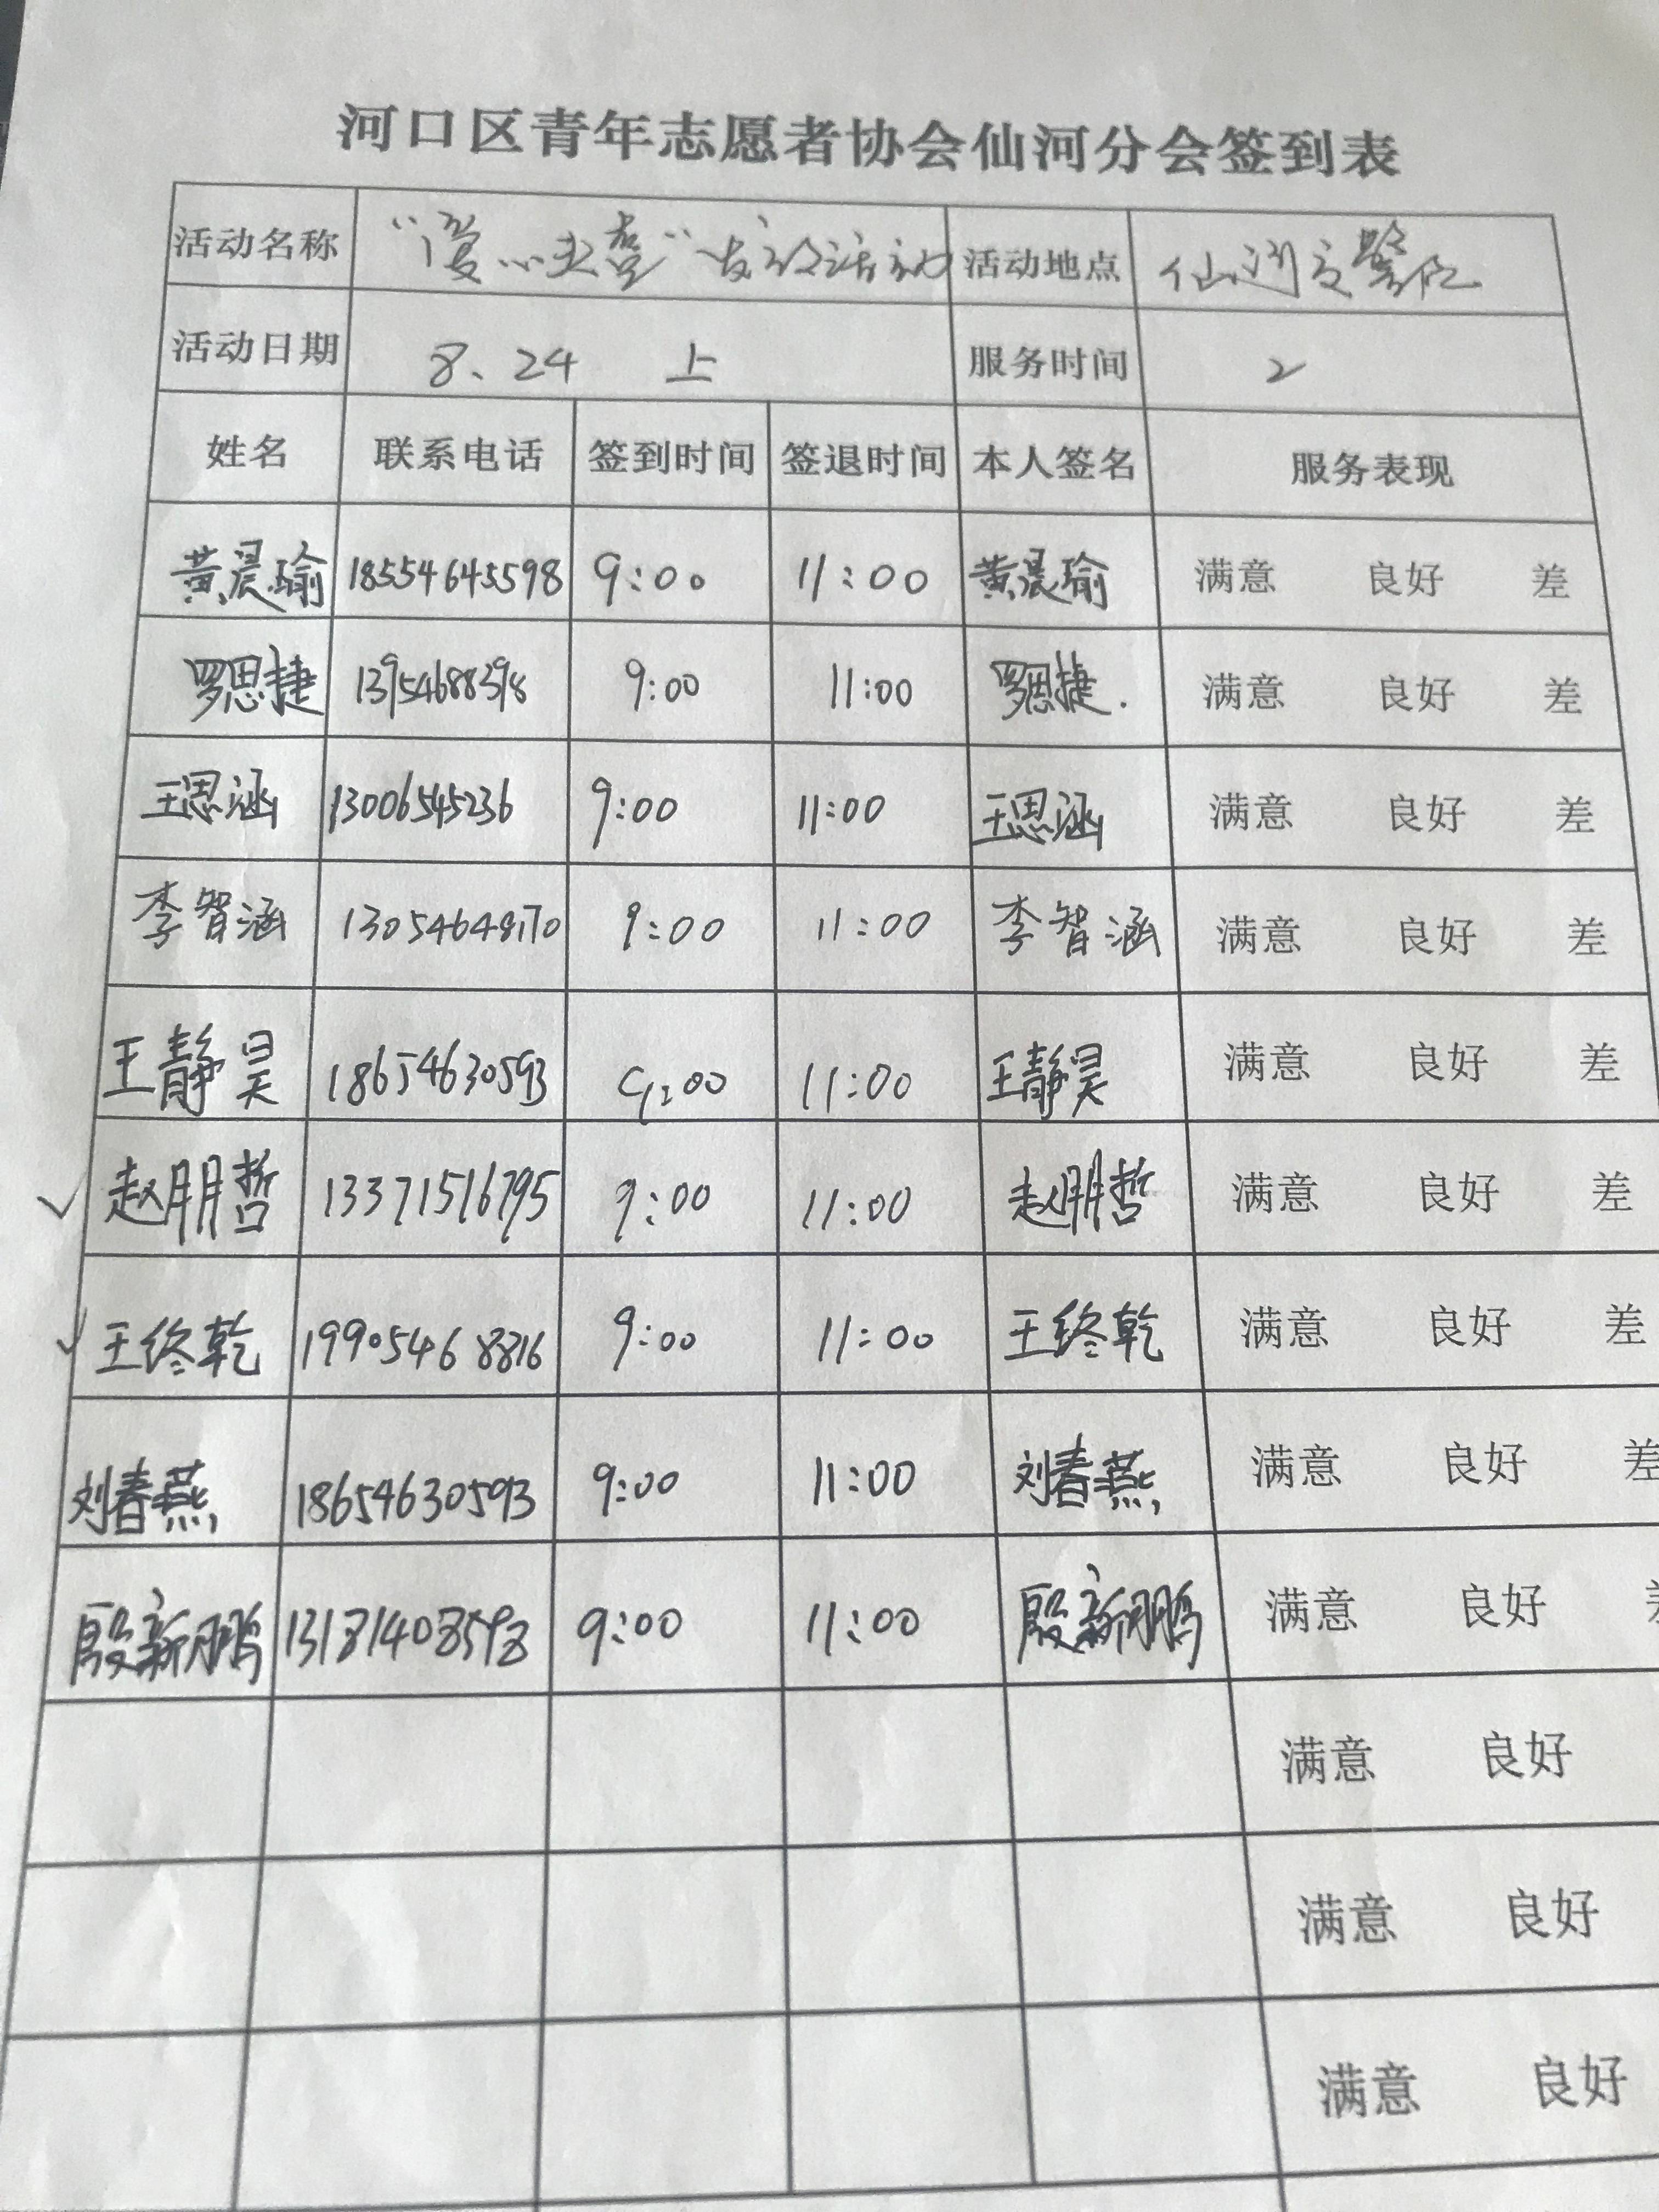 河口区青年志愿者协会仙河分会签到表
活动名称 "爱心头盔"发放活动 活动地点 仙河交警队
活动日期 8、24 上 服务时间 2
姓名 联系电话 签到时间 签退时间 本人签名 服务表现
黄晨瑜 18554645598 9:00 11:00 黄晨瑜 满意 良好 差
罗思捷 13954688398 9:00 11:00 罗思捷. 满意 良好 差
王思涵 13006545236 9:00 11:00 王思涵 满意 良好 差
李智涵 9:00 11:00 李智涵 满意 良好 差
王静昊 18654630593 9:00 11:00 王静昊 满意 良好 差
赵朋哲 13371516795 9:00 11:00 赵朋哲 满意 良好 差
王终乾 9:00 11:00 王终乾 满意 良好 差
刘春燕 18654630593 9:00 11:00 刘春燕 满意 良好 差
殷新鹏 13181408598 9:00 11:00 殷新鹏 满意 良好
满意 良好
满意 良好
满意 良好